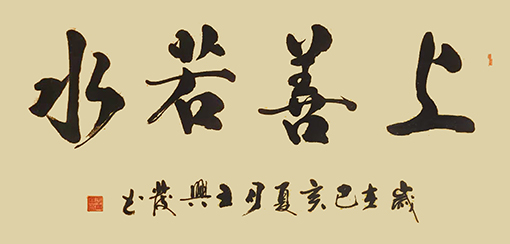 上善若水
歲在己亥夏月王興發書